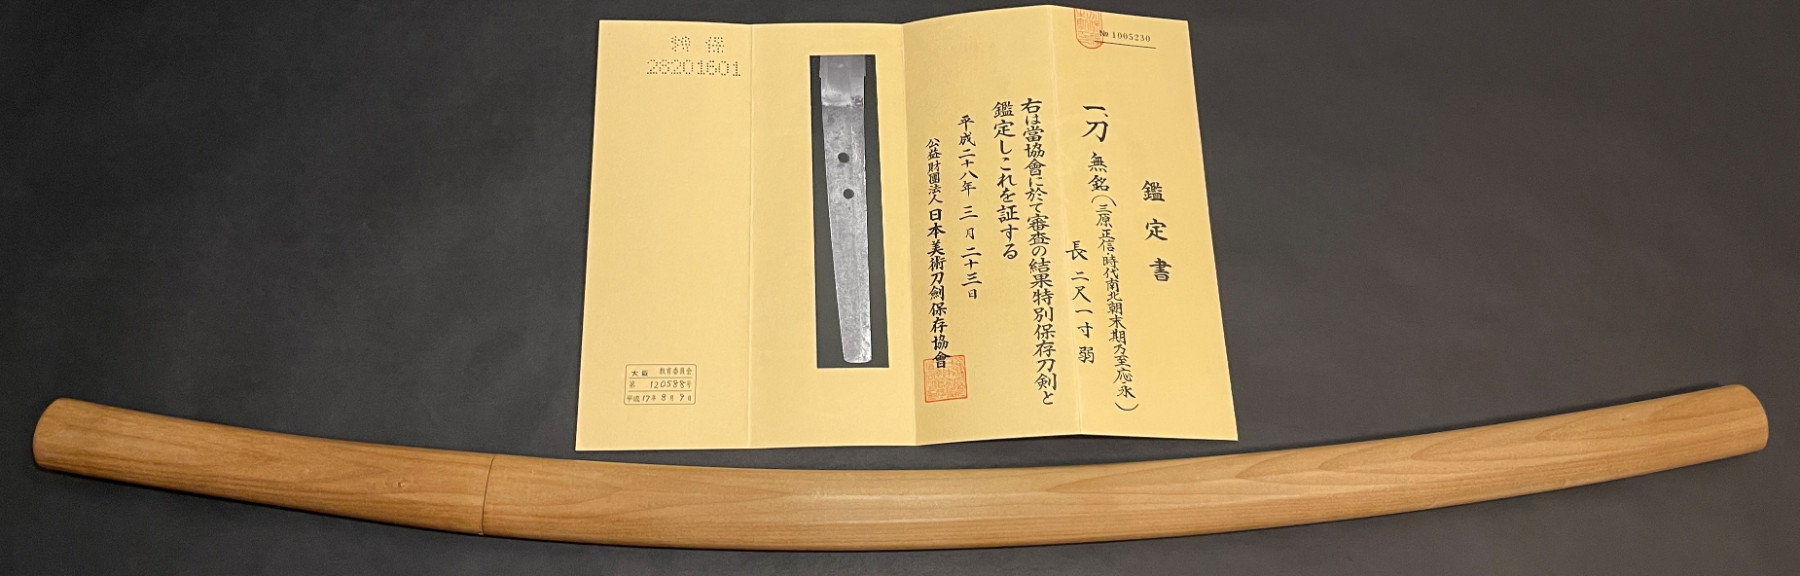 № 1005230
鑑定書
一、刀 無銘(三原正信・時代南北朝末期乃至應永)
長 二尺一寸弱
右は當協會に於て審査の結果特別保存刀剣と
鑑定しこれを証する
平成二十八年 三月二十三日
公益財團法人 日本美術刀劍保存協會
特保
28201601
大阪 教育委員会
第 120588号
平成17年8月9日